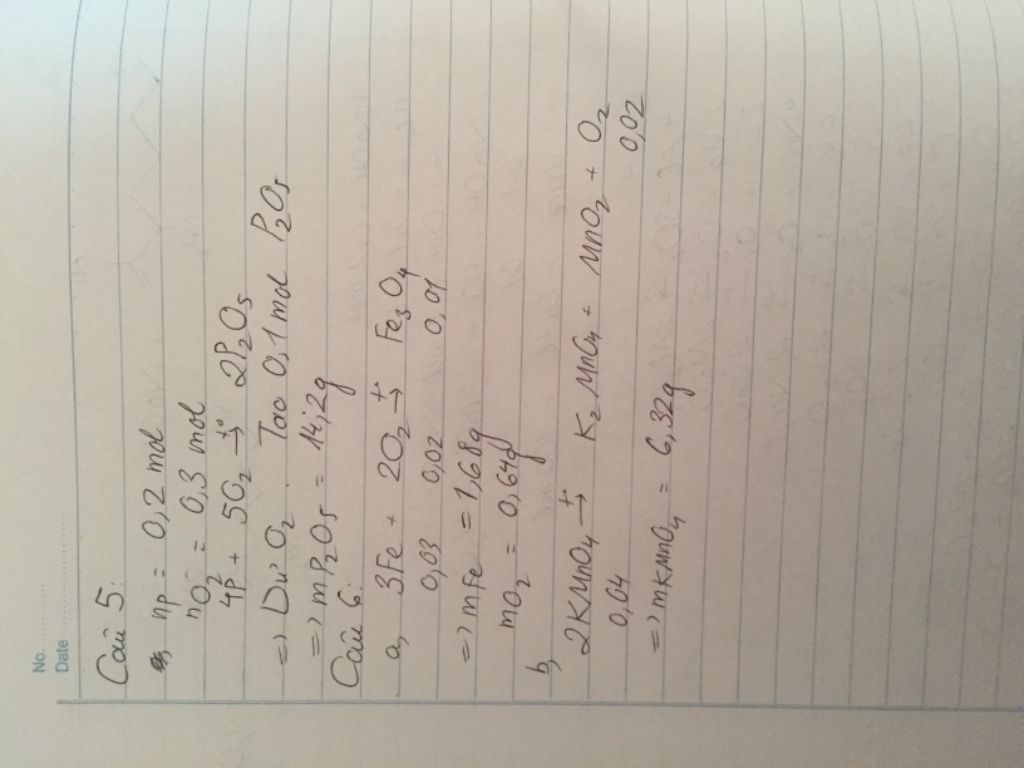 No. ............
Date ........................
Câu 5:
nP = 0,2 mol
nO2 = 0,3 mol
4P + 5O2 →t° 2P2O5
=> Dư O2. Tạo 0,1 mol P2O5
=> mP2O5 = 14,2g
Câu 6:
a, 3Fe + 2O2 →t Fe3O4
0,03 0,02 0,01
=> mFe = 1,68g
mO2 = 0,64g
b,
2KMnO4 →t K2MnO4 + MnO2 + O2
0,04 0,02
=> mKMnO4 = 6,32g